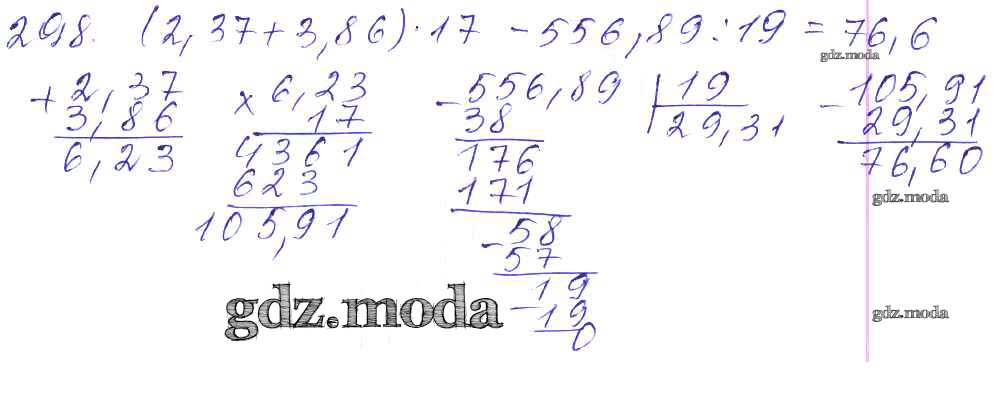 298. (2,37+3,86)·17 -556,89:19=76,6
gdz.moda
+ 2,37
3,86
6,23
× 6,23
17
4361
623
105,91
- 556,89 | 19
38 29,31
176
171
- 58
57
19
- 19
0
- 105,91
29,31
76,60
gdz.moda
gdz.moda
gdz.moda